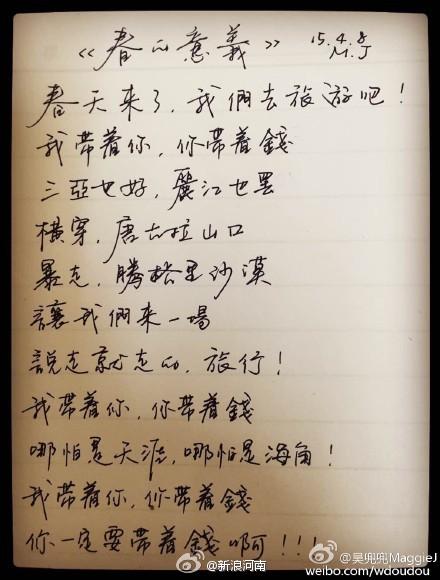 《春的意義》 15.4.8
M.J
春天来了，我們去旅游吧！
我带着你，你带着錢
三亞也好，麗江也罢
横穿，唐古拉山口
暴走，騰格里沙漠
讓我們来一場
説走就走的，旅行！
我带着你，你带着錢
哪怕是天涯，哪怕是海角！
我带着你，你带着錢
你一定要带着錢啊！！！
@新浪河南
@吴兜兜MaggieJ
weibo.com/wdoudou